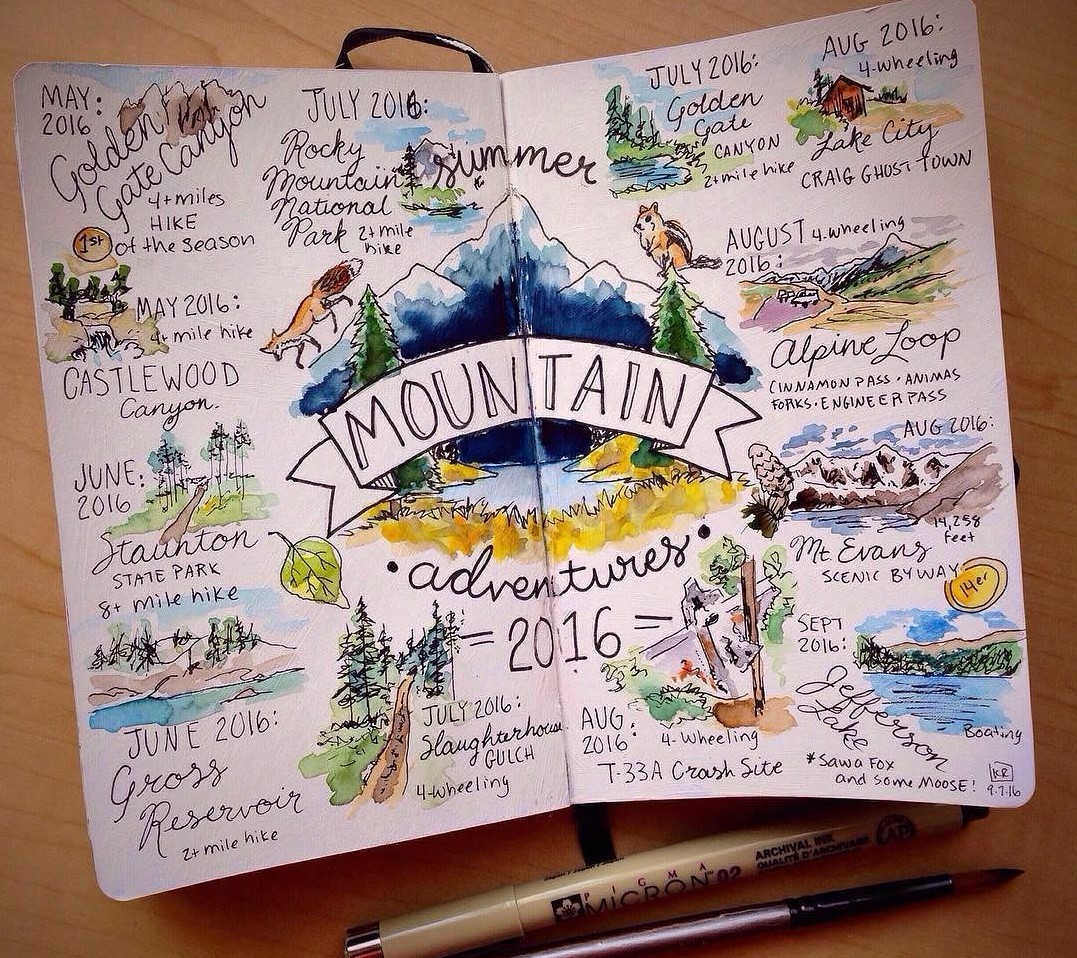 MAY:
2016:
Golden
Gate Canyon
4+ miles
HIKE
1st of the season
MAY 2016:
4+ mile hike
CASTLEWOOD
Canyon.
JUNE:
2016
Staunton
STATE PARK
8+ mile hike
JUNE 2016:
Gross
Reservoir
2+ mile hike
JULY 2016:
Rocky
Mountain
National
Park 2+ mile
hike
summer
MOUNTAIN
• adventures •
= 2016 =
JULY 2016:
Slaughterhouse
GULCH
4-wheeling
JULY 2016:
Golden
Gate
CANYON
2+ mile hike
AUG 2016:
4-wheeling
Lake City
CRAIG GHOST TOWN
AUGUST 4-wheeling
2016:
Alpine Loop
CINNAMON PASS • ANIMAS
FORKS • ENGINEER PASS
AUG 2016:
14,258
feet
Mt Evans
SCENIC BYWAY
14er
AUG:
2016:
4-Wheeling
T-33A Crash Site
SEPT
2016:
Jefferson
Lake
Boating
*Sawa Fox
and some MOOSE!
KR
9.7.16
PIGMA
MICRON 02
ARCHIVAL INK
QUALITÉ D'ARCHIVAGE
AP